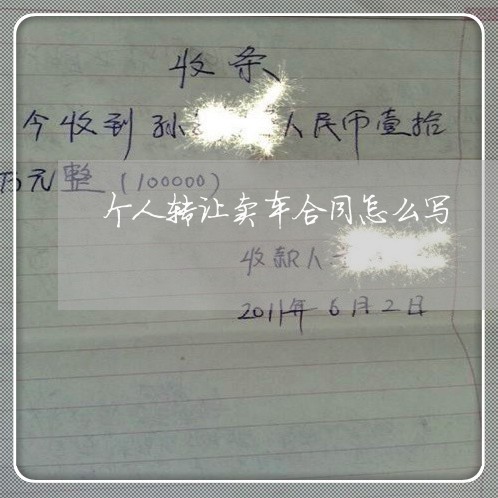 收条
今收到孙 人民币壹拾
万元整（100000）
个人转让卖车合同怎么写
收款人
2011年6月2日